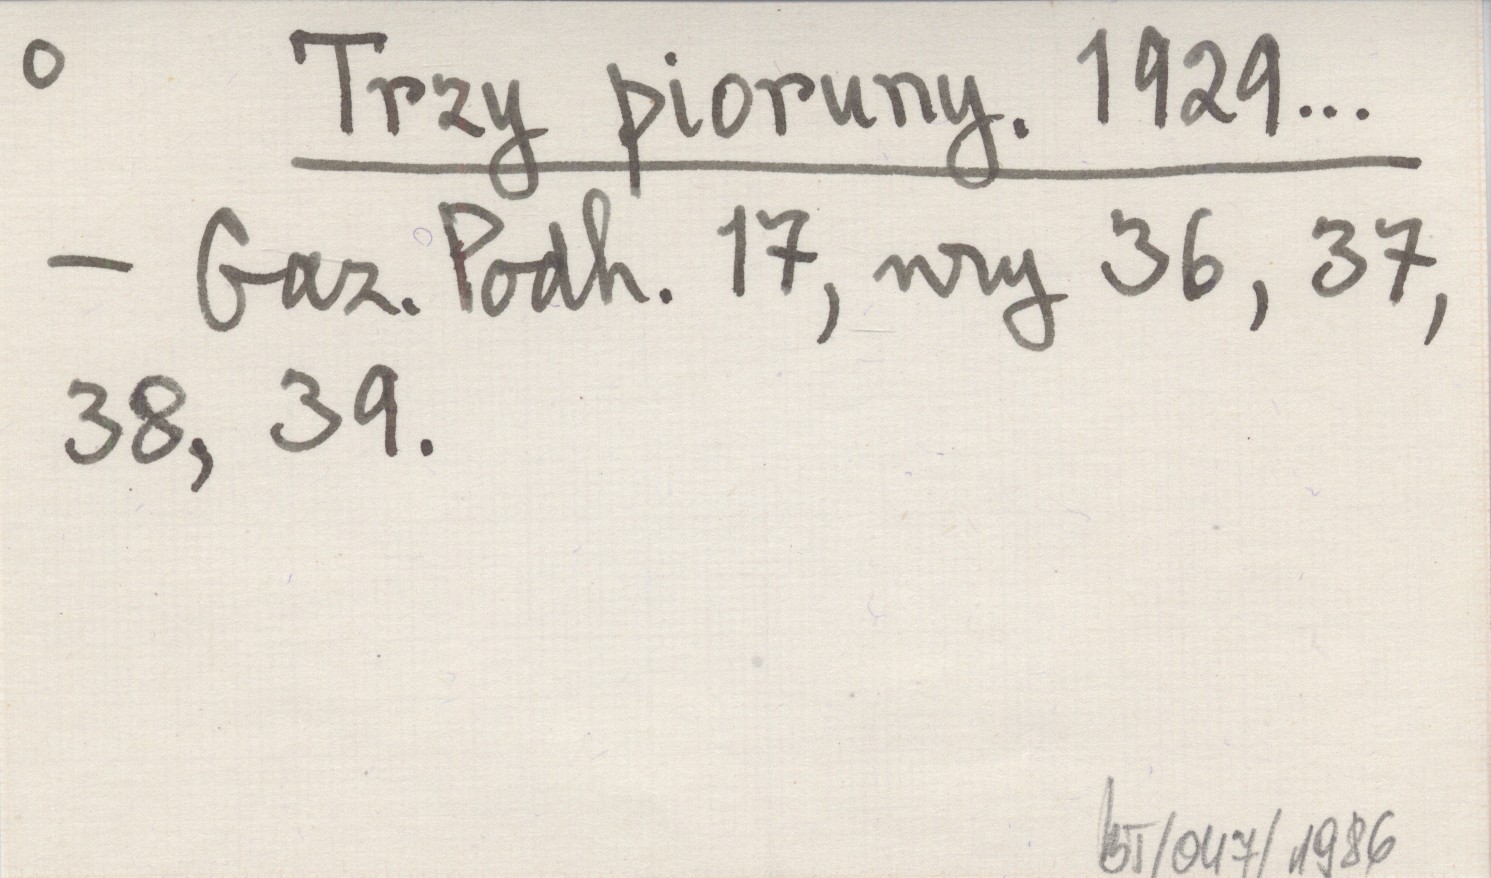 o Trzy pioruny. 1929...
– Gaz. Podh. 17, nry 36, 37,
38, 39.
/047/1986